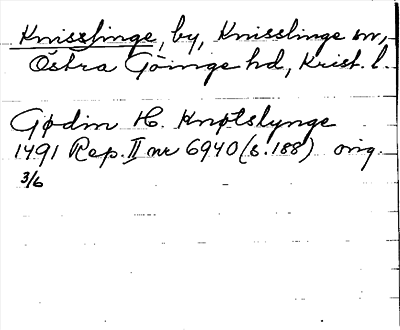 Knisslinge, by, Knisslinge sn,
Östra Göinge hd, Krist. l.
Gødin H. Knøtslynge
1491 Rep. II nr 6940 (s. 188) orig.
3/6